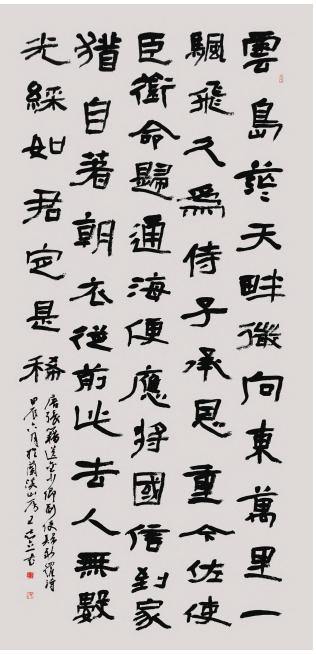 雲島茫〻天畔微向東萬里一
颿飛久爲侍子承恩重今佐使
臣銜命歸通海便應將國信到家
猶自著朝衣從前此去人無數
光綵如君定是稀
唐張籍送金少卿副使歸新羅詩
甲辰六月於蘭溪山房王